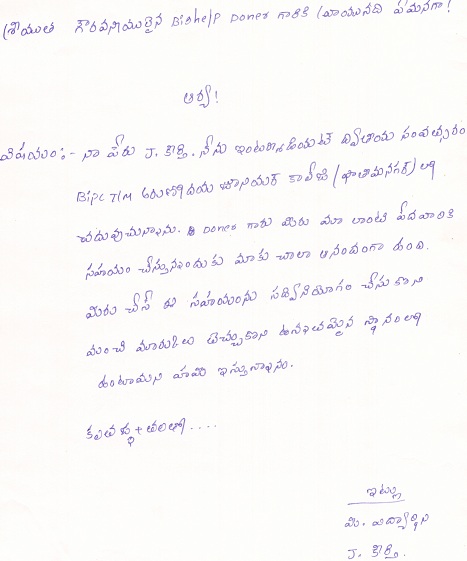 శ్రీయుత గౌరవనీయులైన Bighelp Doner గారికి వ్రాయునది ఏమనగా!
ఆర్య!
విషయం:- నా పేరు J. కీర్తి. నేను ఇంటర్మీడియట్ ద్వితీయ సంవత్సరం
BiPC T/M అరుణోదయ జూనియర్ కాలేజి (ఫాతిమనగర్) లో
చదువుచున్నాను. Doner గారు మీరు మా లాంటి పేదవారికి
సహాయం చేస్తున్నందుకు మాకు చాలా ఆనందంగా ఉంది.
మీరు చేసే ఈ సహాయంను సద్వినియోగం చేసుకొని
మంచి మార్కులు తెచ్చుకొని ఉన్నతమైన స్థానంలో
ఉంటామని హామీ ఇస్తున్నాను.
ఇట్లు
మీ. విద్యార్థిని
J. కీర్తి.